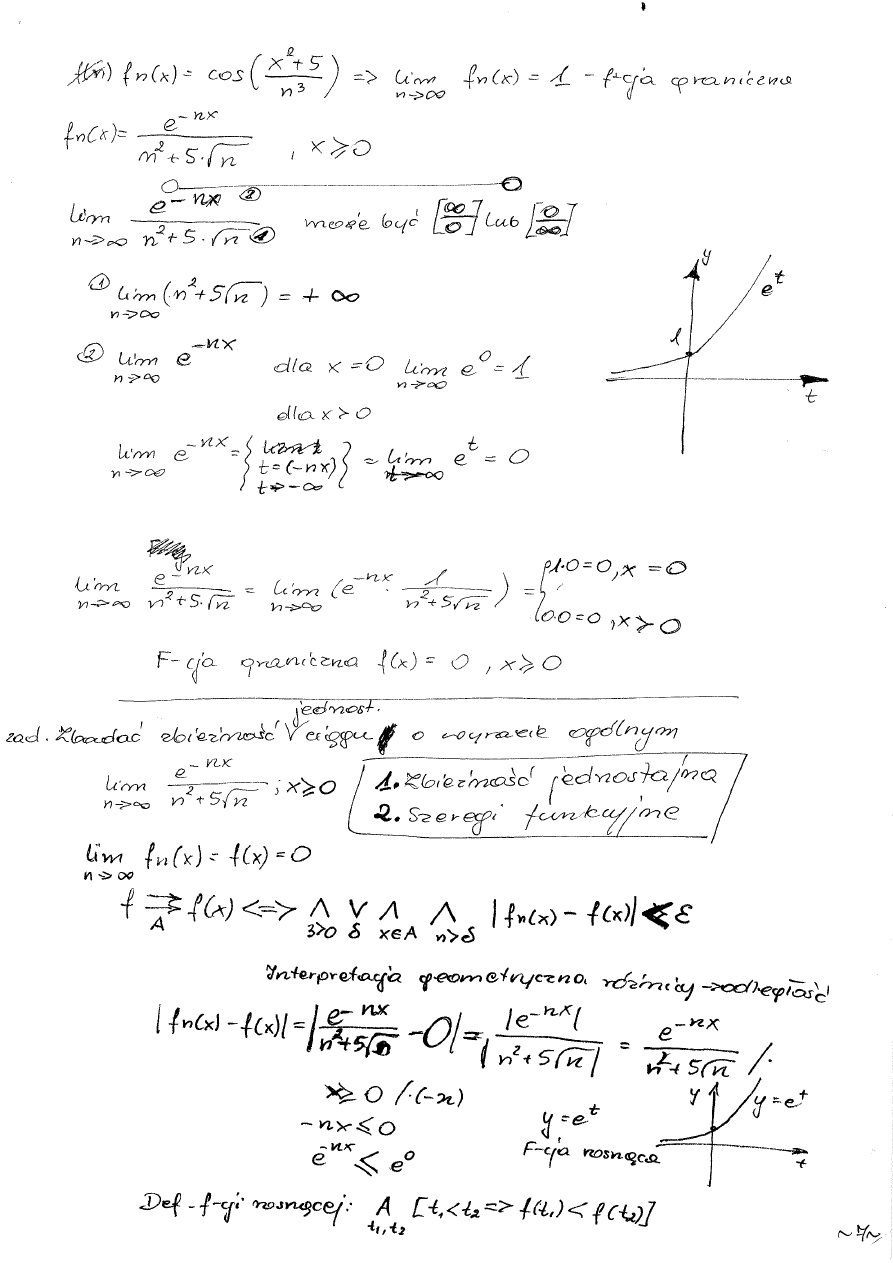 fn(x) = cos(x²+5 / n³) => lim n→∞ fn(x) = 1 - f-cja graniczna
fn(x) = e^-nx / n²+5·√n , x ≥ 0
lim n→∞ e^-nx ② / n²+5·√n ① może być [∞/0] lub [0/∞]
① lim n→∞ (n²+5√n) = +∞
y
e^t
1
t
② lim n→∞ e^-nx dla x = 0 lim n→∞ e^0 = 1
dla x > 0
lim n→∞ e^-nx = { t = (-nx) t→-∞ } = lim e^t = 0
lim n→∞ e^-nx / n²+5·√n = lim n→∞ (e^-nx · 1 / n²+5√n) = { 1·0=0, x = 0
0·0=0, x > 0
F-cja graniczna f(x) = 0 , x ≥ 0
zad. Zbadać zbieżność jednost. ciągu o wyrazie ogólnym
lim n→∞ e^-nx / n²+5√n ; x ≥ 0
1. Zbieżność jednostajna
2. Szeregi funkcyjne
lim n→∞ fn(x) = f(x) = 0
f ⇉ A f(x) <=> ∧ 3>0 ∨ δ ∧ x∈A ∧ n>δ |fn(x) - f(x)| < ε
Interpretacja geometryczna różnicy → odległość
|fn(x) - f(x)| = | e^-nx / n²+5√n - 0 | = |e^-nx| / |n²+5√n| = e^-nx / n²+5√n /·
x ≥ 0 /·(-n)
-nx ≤ 0
e^-nx ≤ e^0
y = e^t
F-cja rosnąca
y
y = e^t
t
Def - f-cji rosnącej: A t1,t2 [t1 < t2 => f(t1) < f(t2)]
~7~